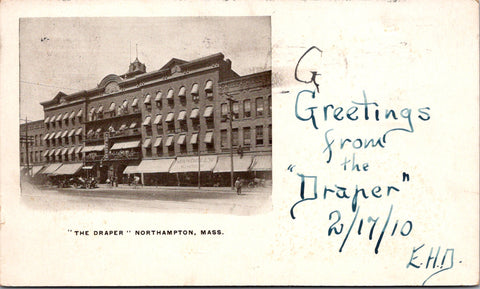 G
Greetings
from
the
"Draper"
2/17/10
E.H.D.
"THE DRAPER" NORTHAMPTON, MASS.